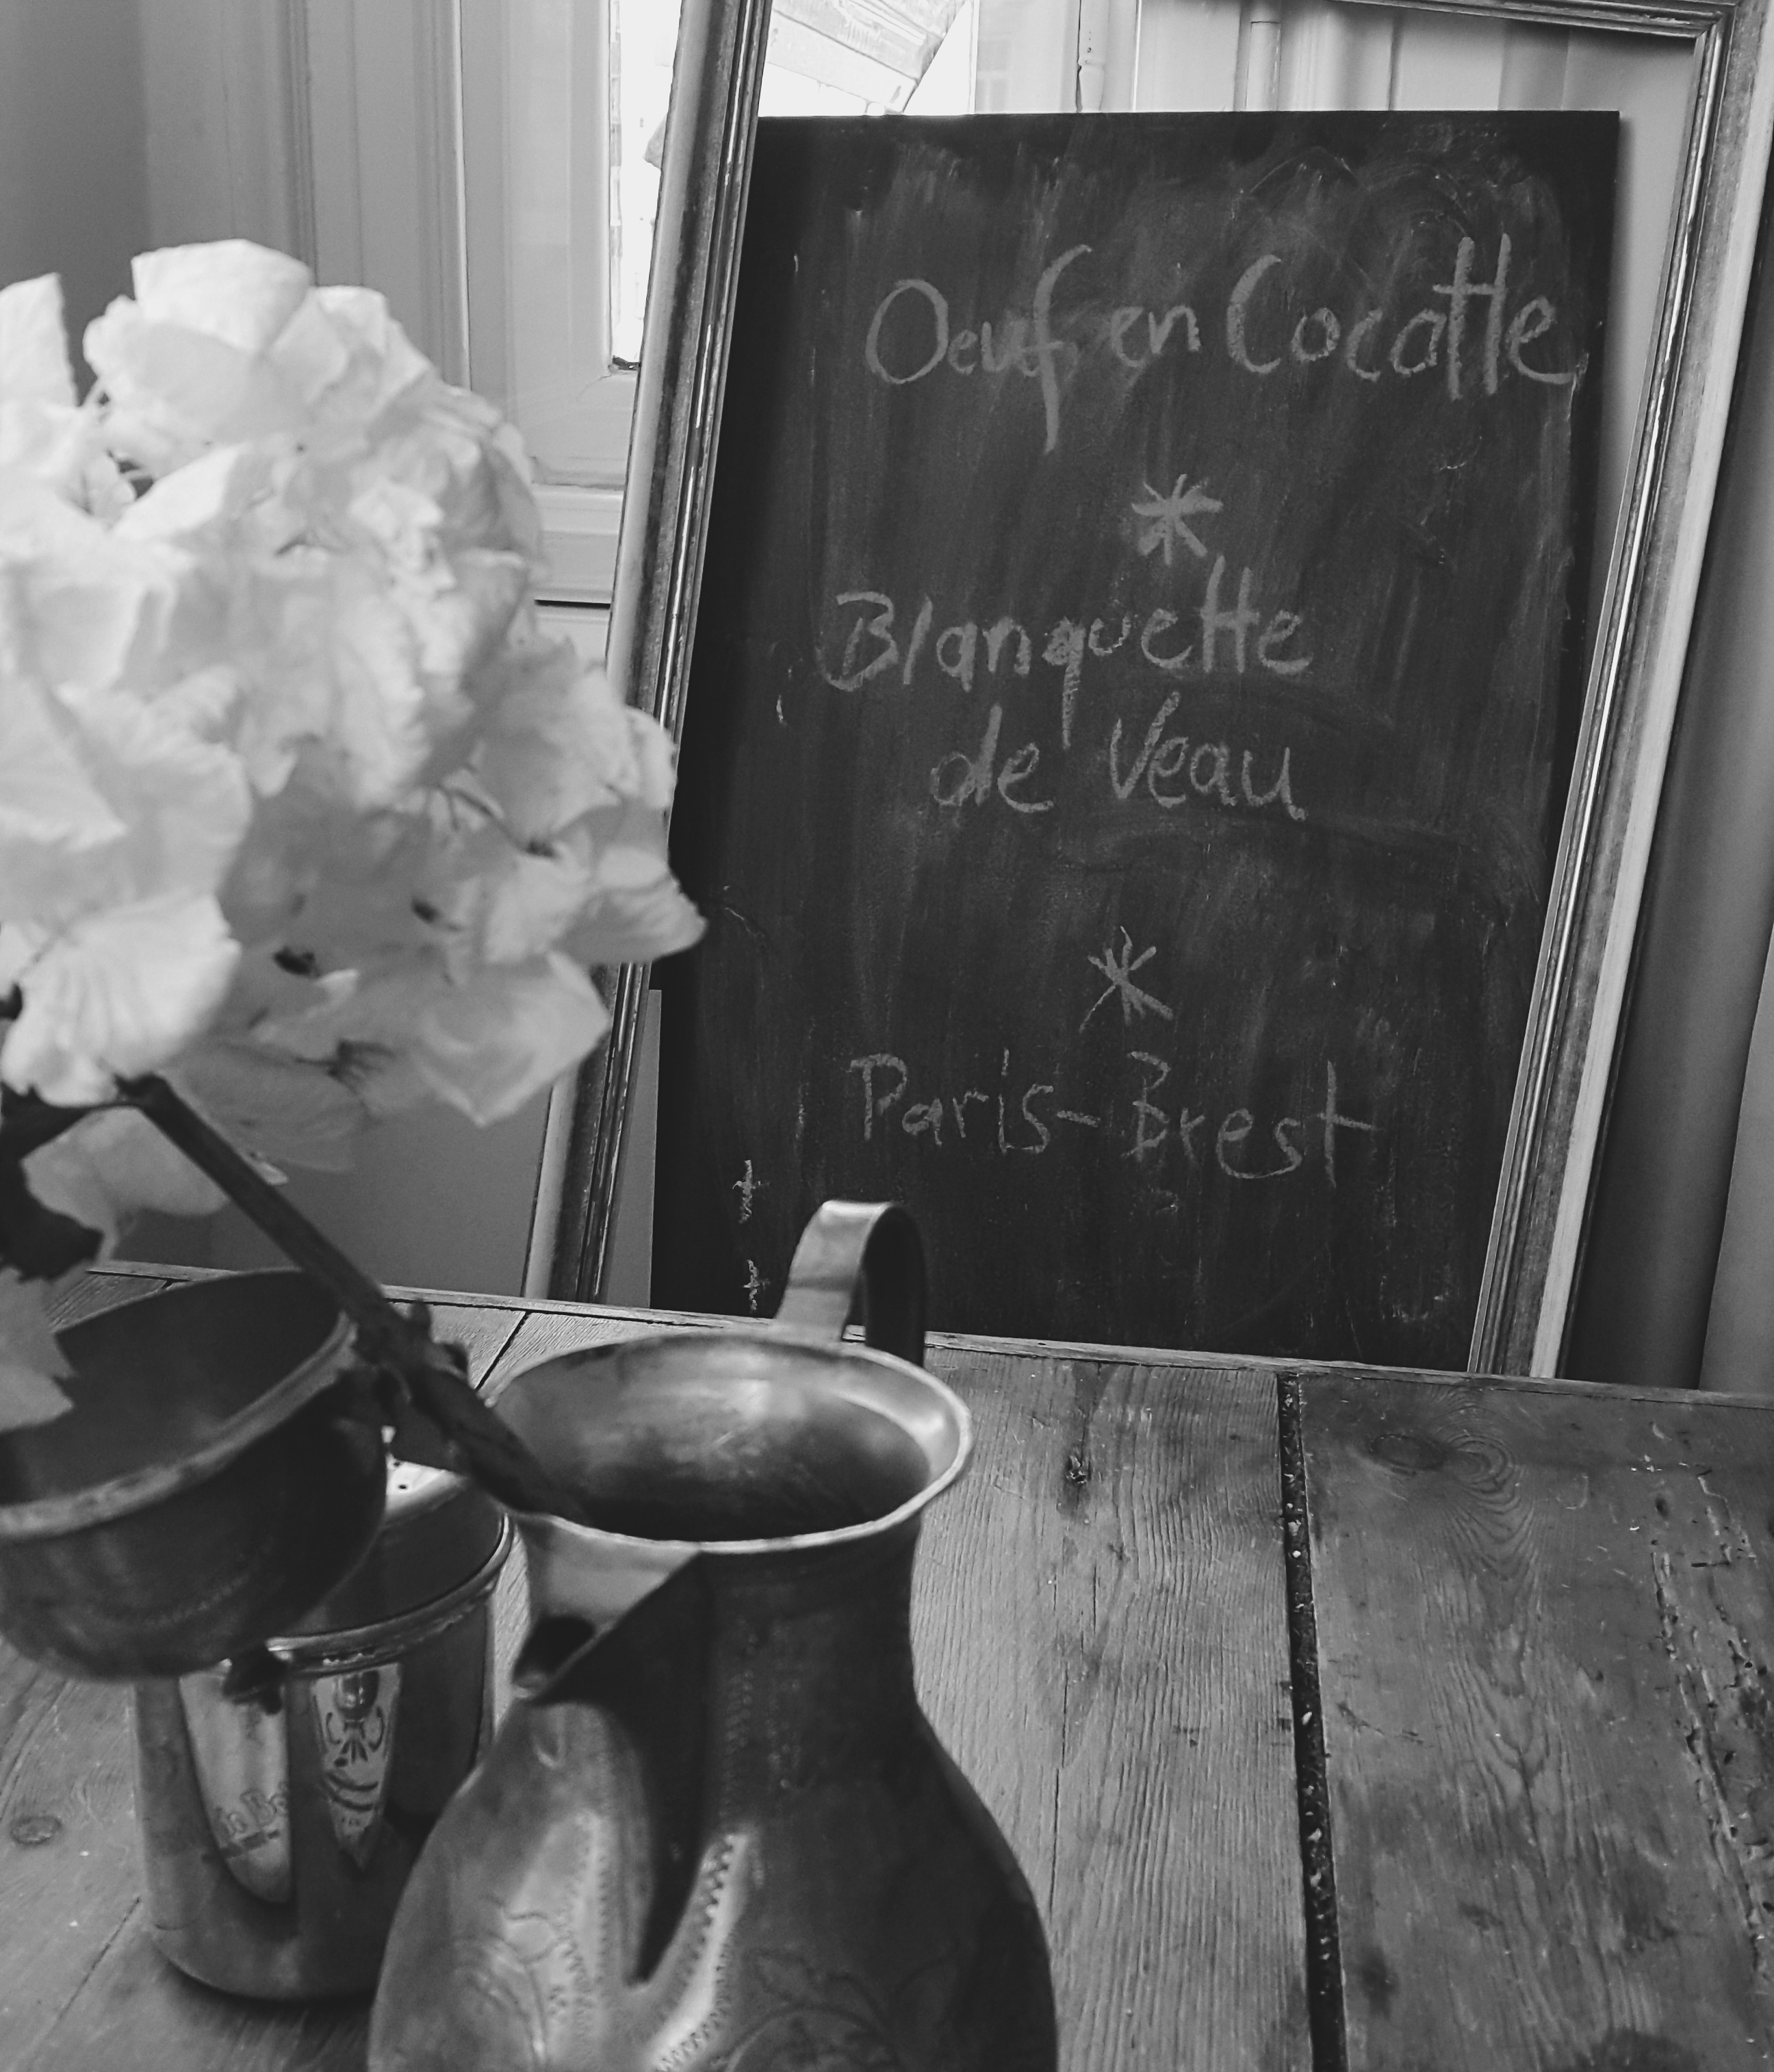 Oeuf en Cocotte
*
Blanquette
de Veau
*
Paris-Brest